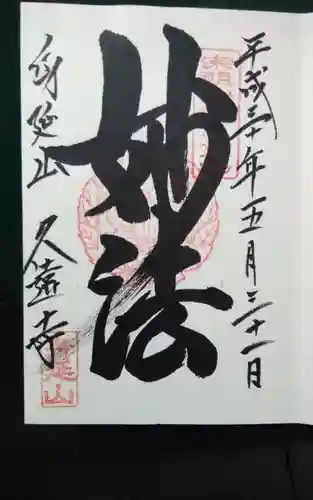 平成三十年五月三十一日
妙法
身延山 久遠寺
身延山